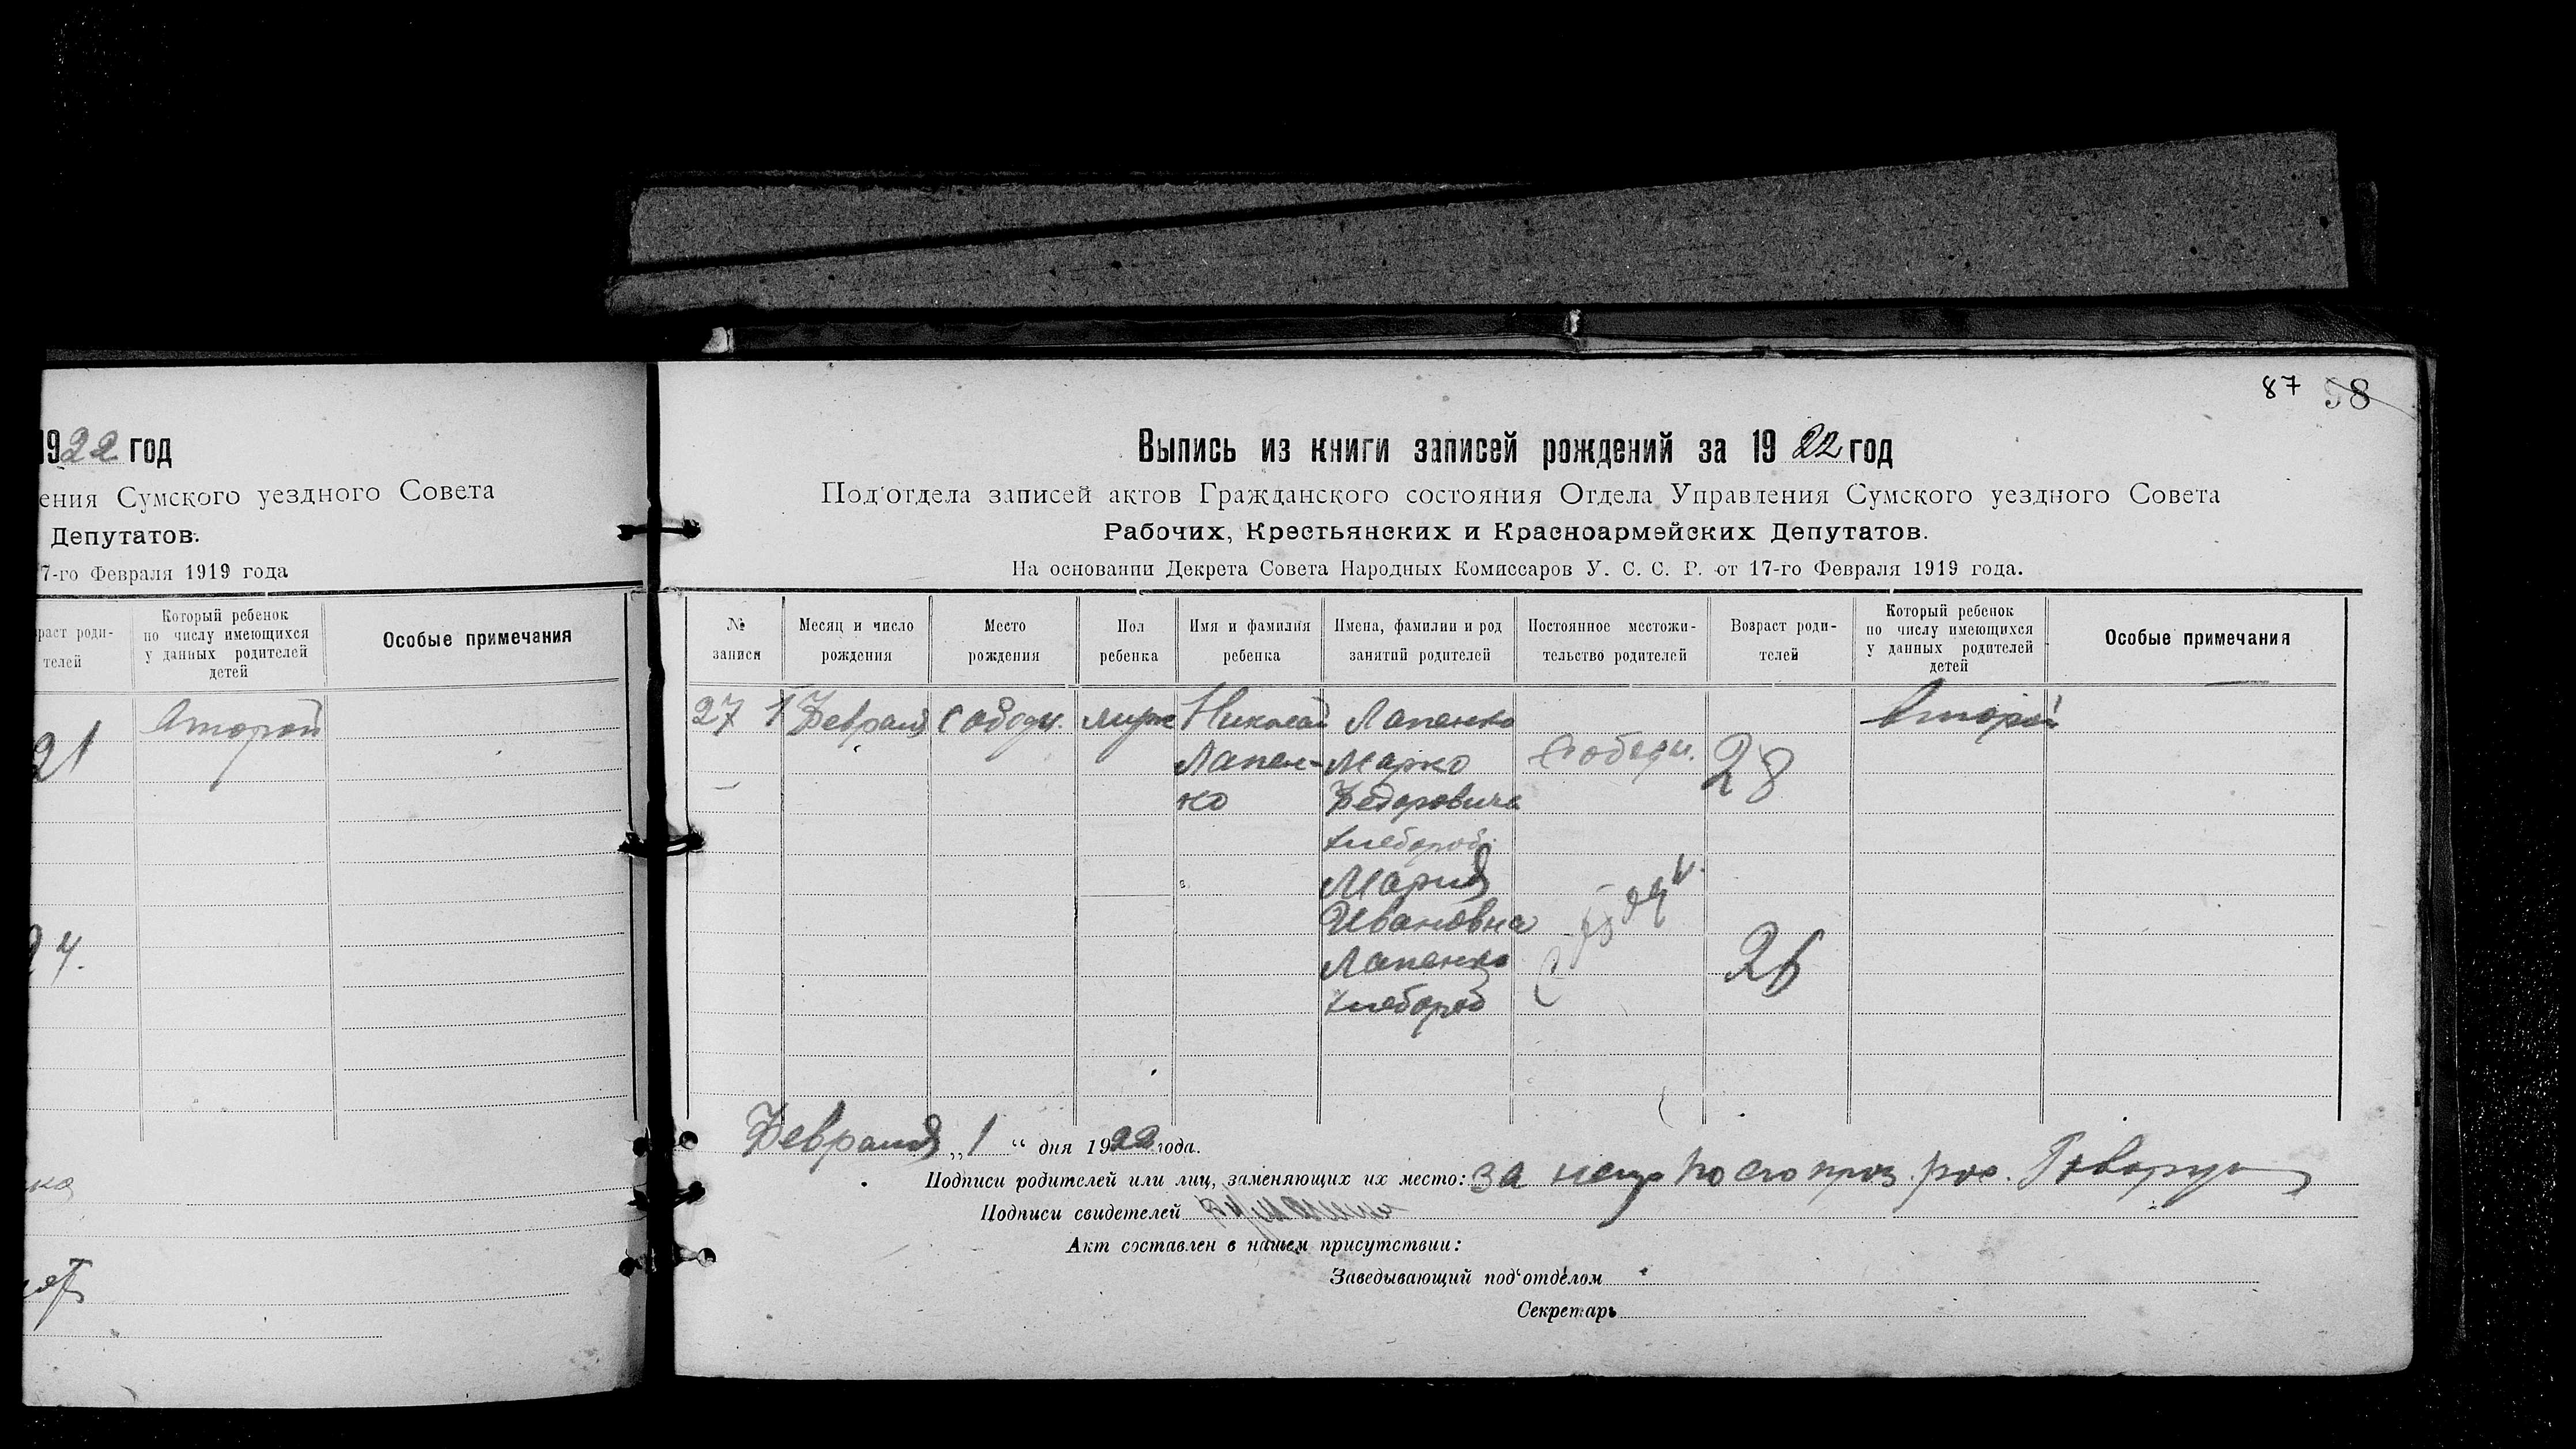 1922 год
ения Сумского уездного Совета
Депутатов.
7-го Февраля 1919 года
раст роди-
телей
Который ребенок
по числу имеющихся
у данных родителей
детей
Особые примечания
21
Второй
24.
87 98
Выпись из книги записей рождений за 1922 год
Под'отдела записей актов Гражданского состояния Отдела Управления Сумского уездного Совета
Рабочих, Крестьянских и Красноармейских Депутатов.
На основании Декрета Совета Народных Комиссаров У. С. С. Р. от 17-го Февраля 1919 года.
№
записи
Месяц и число
рождения
Место
рождения
Пол
ребенка
Имя и фамилия
ребенка
Имена, фамилии и род
занятий родителей
Постоянное местожи-
тельство родителей
Возраст роди-
телей
Который ребенок
по числу имеющихся
у данных родителей
детей
Особые примечания
27
1 Февраля
муж
Николай
Лапен-
ко
Лапенко
Марко
Федорович
хлебороб
Мария
Ивановна
Лапенко
хлебороб
28
26
Второй
Февраля „1“ дня 1922 года.
Подписи родителей или лиц, заменяющих их место: за
Подписи свидетелей
Акт составлен в нашем присутствии:
Заведывающий под'отделом
Секретарь